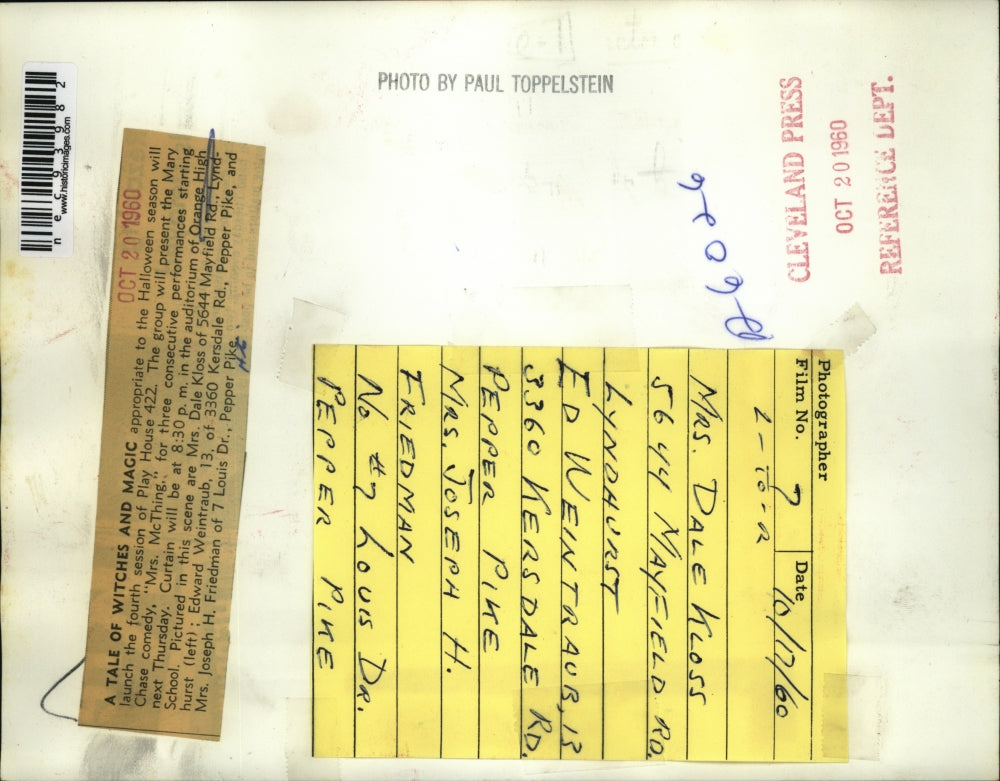 PHOTO BY PAUL TOPPELSTEIN
CLEVELAND PRESS
OCT 20 1960
REFERENCE DEPT.
www.historicimages.com
nec93982
OCT 20 1960
A TALE OF WITCHES AND MAGIC appropriate to the Halloween season will
launch the fourth session of Play House 422. The group will present the Mary
Chase comedy, "Mrs. McThing," for three consecutive performances starting
next Thursday. Curtain will be at 8:30 p. m. in the auditorium of Orange High
School. Pictured in this scene are Mrs. Dale Kloss of 5644 Mayfield Rd., Lynd-
hurst (left); Edward Weintraub, 13, of 3360 Kersdale Rd., Pepper Pike, and
Mrs. Joseph H. Friedman of 7 Louis Dr., Pepper Pike.
Photographer
Film No.
Date 10/17/60
MRS. DALE KLOSS
5644 MAYFIELD RD.
LYNDHURST
ED WEINTRAUB, 13
3360 KERSDALE RD.
PEPPER PIKE
MRS. JOSEPH H.
FRIEDMAN
NO #7 LOUIS DR.
PEPPER PIKE